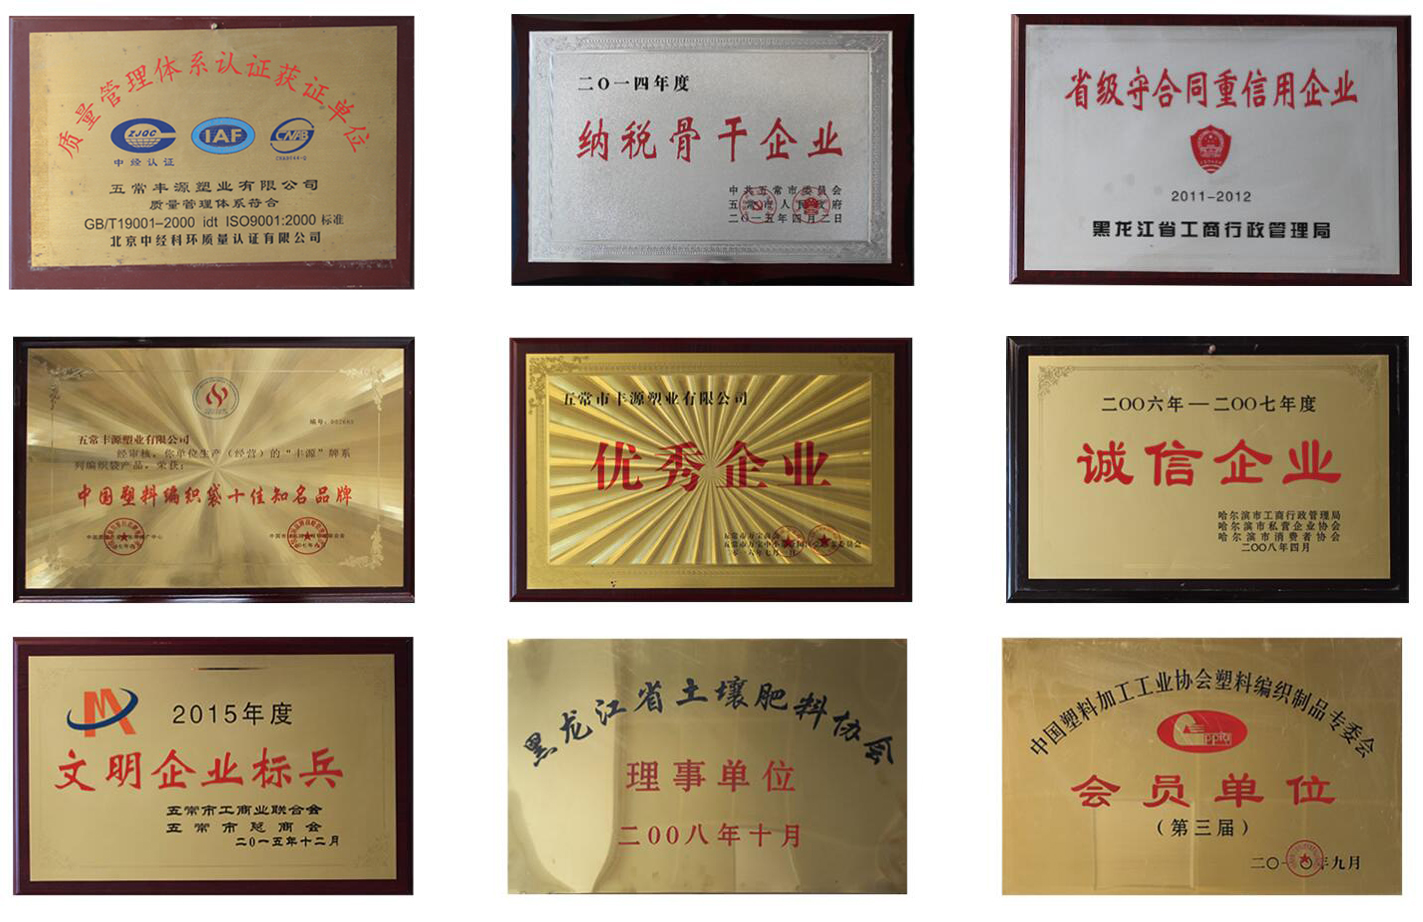 质量管理体系认证获证单位
ZJQC
IAF
CNAB
中经认证
五常丰源塑业有限公司
质量管理体系符合
GB/T19001-2000 idt ISO9001:2000 标准
北京中经科环质量认证有限公司
二〇一四年度
纳税骨干企业
中共五常市委员会
五常市人民政府
二〇一五年四月二日
省级守合同重信用企业
2011-2012
黑龙江省工商行政管理局
五常丰源塑业有限公司
经审核，你单位生产（经营）的“丰源”牌系
列编织袋产品，荣获：
中国塑料编织袋十佳知名品牌
五常市丰源塑业有限公司
优秀企业
二〇〇六年—二〇〇七年度
诚信企业
哈尔滨市工商行政管理局
哈尔滨市私营企业协会
哈尔滨市消费者协会
二〇〇八年四月
2015年度
文明企业标兵
五常市工商业联合会
五常市总商会
二〇一五年十二月
黑龙江省土壤肥料协会
理事单位
二〇〇八年十月
中国塑料加工工业协会塑料编织制品专委会
会员单位
（第三届）
二〇一〇年九月